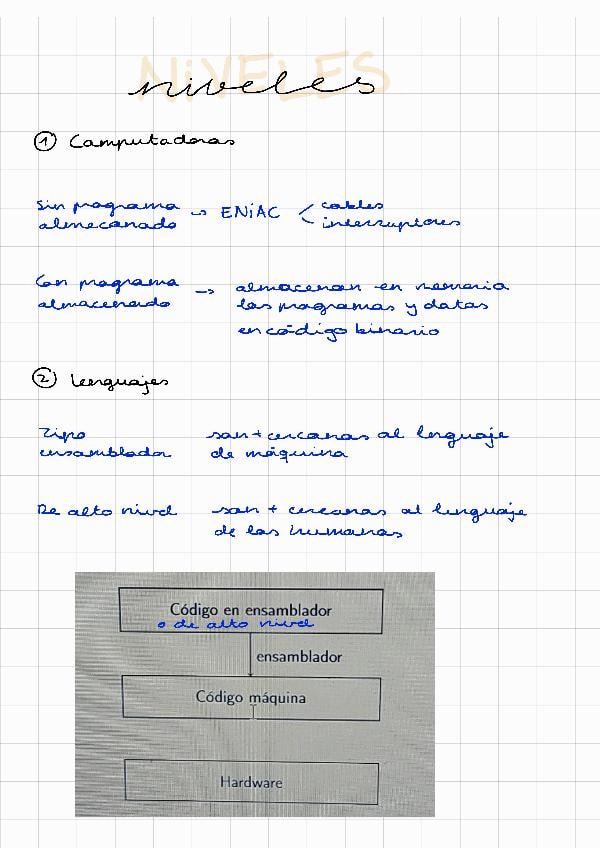 NiVELES
niveles
① Computadoras
Sin programa almacenado → ENiAC < cables interruptores
Con programa almacenado → almacenan en memoria
los programas y datos
en código binario
② Lenguajes
Tipo ensamblador son + cercanos al lenguaje
de máquina
De alto nivel son + cercanos al lenguaje
de los humanos
Código en ensamblador
o de alto nivel
ensamblador
Código máquina
Hardware